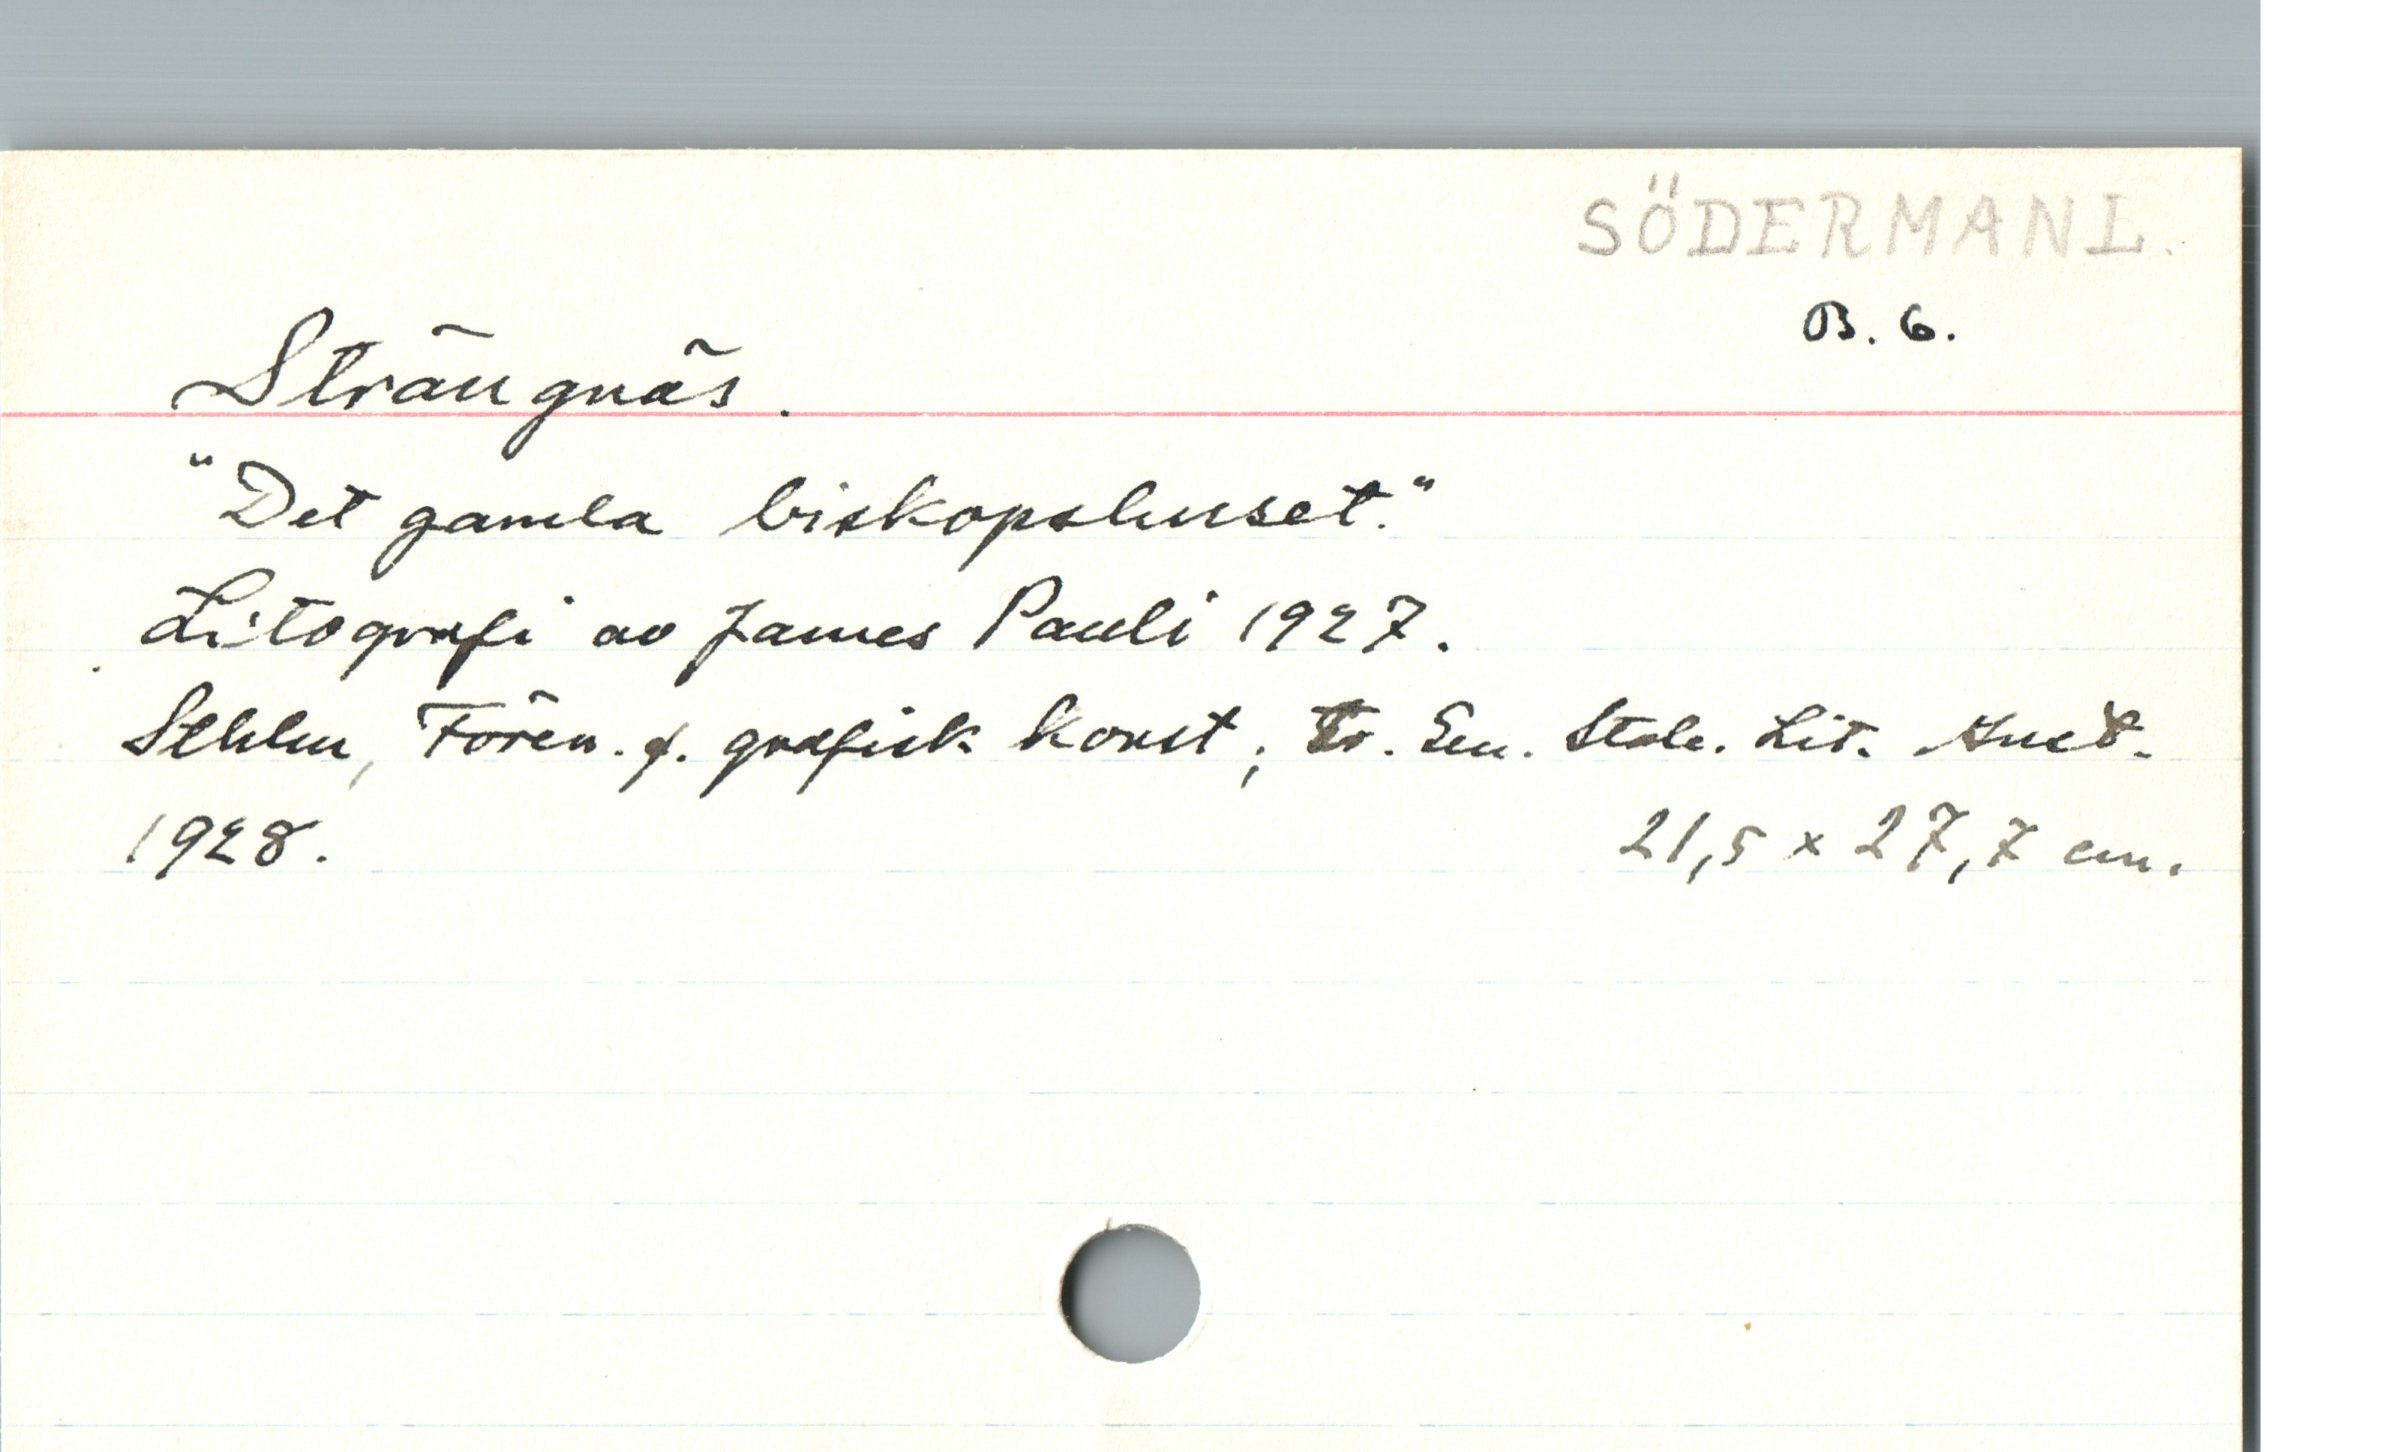 SÖDERMANL.
B. 6.
Strängnäs.
"Det gamla biskopshuset."
Litografi av James Pauli 1927.
Sthlm, Fören. f. grafisk konst; Tr. Gen. Stab. Lit. Anst.
1928. 21,5 x 27,7 cm.